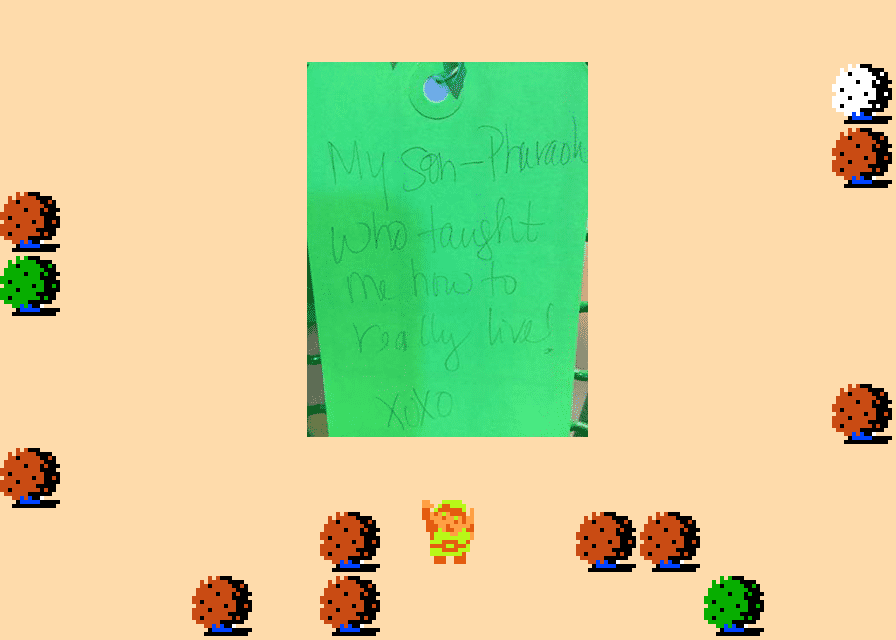 My Son-Pharaoh
who taught
me how to
really live!
XOXO